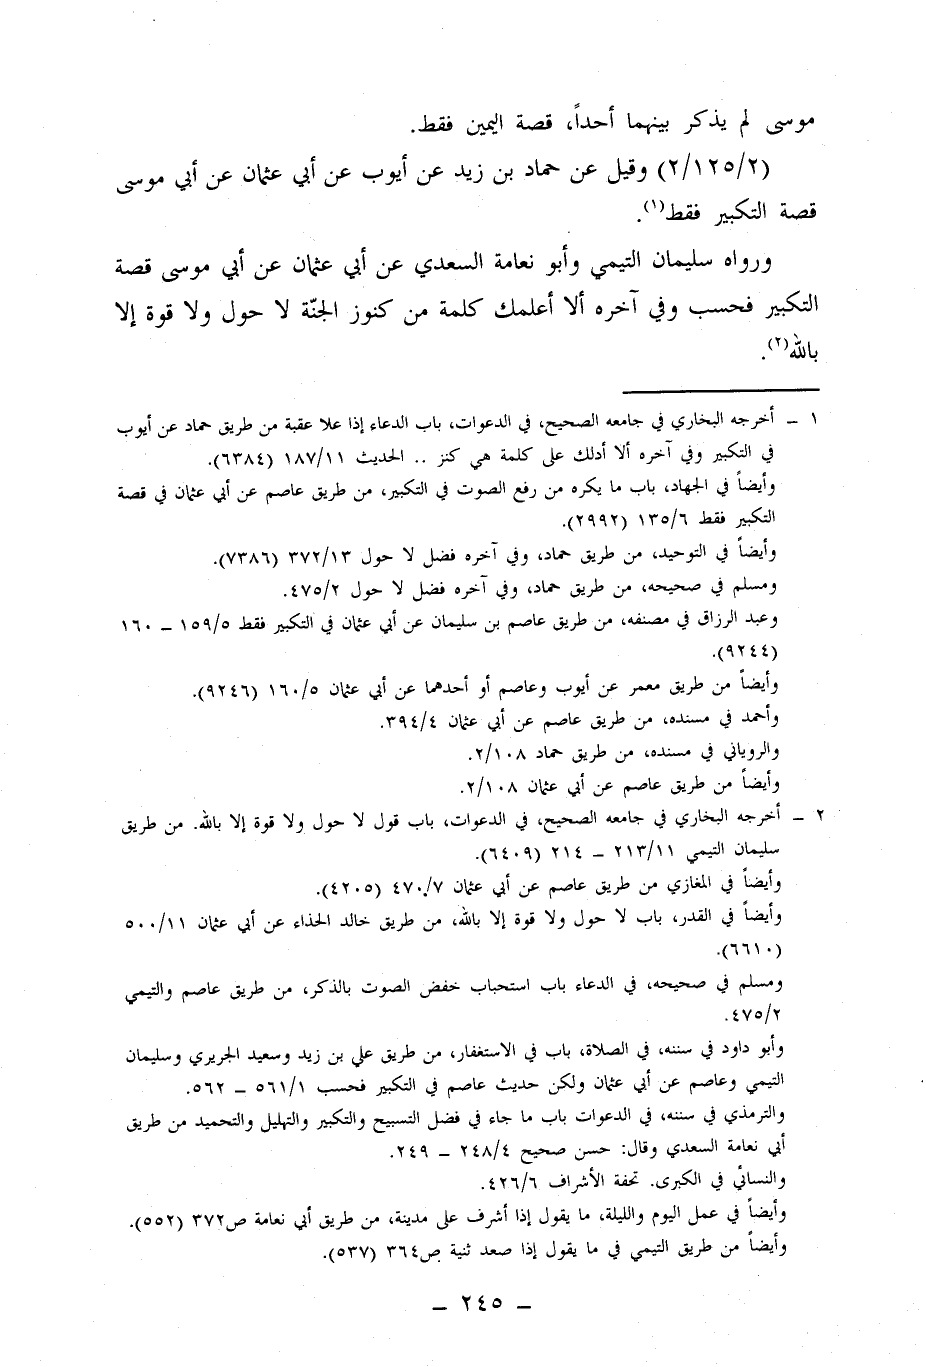 موسى لم يذكر بينهما أحداً، قصة اليمين فقط.
(٢/١٢٥/٢) وقيل عن حماد بن زيد عن أيوب عن أبي عثمان عن أبي موسى
قصة التكبير فقط(١).
ورواه سليمان التيمي وأبو نعامة السعدي عن أبي عثمان عن أبي موسى قصة
التكبير فحسب وفي آخره ألا أعلمك كلمة من كنوز الجنّة لا حول ولا قوة إلا
بالله(٢).
١ ــ أخرجه البخاري في جامعه الصحيح، في الدعوات، باب الدعاء إذا علا عقبة من طريق حماد عن أيوب
في التكبير وفي آخره ألا أدلك على كلمة هي كنز .. الحديث ١٨٧/١١ (٦٣٨٤).
وأيضاً في الجهاد، باب ما يكره من رفع الصوت في التكبير، من طريق عاصم عن أبي عثمان في قصة
التكبير فقط ١٣٥/٦ (٢٩٩٢).
وأيضاً في التوحيد، من طريق حماد، وفي آخره فضل لا حول ٣٧٢/١٣ (٧٣٨٦).
ومسلم في صحيحه، من طريق حماد، وفي آخره فضل لا حول ٤٧٥/٢.
وعبد الرزاق في مصنفه، من طريق عاصم بن سليمان عن أبي عثمان في التكبير فقط ١٥٩/٥ ــ ١٦٠
(٩٢٤٤).
وأيضاً من طريق معمر عن أيوب وعاصم أو أحدهما عن أبي عثمان ١٦٠/٥ (٩٢٤٦).
وأحمد في مسنده، من طريق عاصم عن أبي عثمان ٣٩٤/٤.
والروياني في مسنده، من طريق حماد ٢/١٠٨.
وأيضاً من طريق عاصم عن أبي عثمان ٢/١٠٨.
٢ ــ أخرجه البخاري في جامعه الصحيح، في الدعوات، باب قول لا حول ولا قوة إلا بالله. من طريق
سليمان التيمي ٢١٣/١١ ــ ٢١٤ (٦٤٠٩).
وأيضاً في المغازي من طريق عاصم عن أبي عثمان ٤٧٠/٧ (٤٢٠٥).
وأيضاً في القدر، باب لا حول ولا قوة إلا بالله، من طريق خالد الحذاء عن أبي عثمان ٥٠٠/١١
(٦٦١٠).
ومسلم في صحيحه، في الدعاء باب استحباب خفض الصوت بالذكر، من طريق عاصم والتيمي
٤٧٥/٢.
وأبو داود في سننه، في الصلاة، باب في الاستغفار، من طريق علي بن زيد وسعيد الجريري وسليمان
التيمي وعاصم عن أبي عثمان ولكن حديث عاصم في التكبير فحسب ٥٦١/١ ــ ٥٦٢.
والترمذي في سننه، في الدعوات باب ما جاء في فضل التسبيح والتكبير والتهليل والتحميد من طريق
أبي نعامة السعدي وقال: حسن صحيح ٢٤٨/٤ ــ ٢٤٩.
والنسائي في الكبرى. تحفة الأشراف ٤٢٦/٦.
وأيضاً في عمل اليوم والليلة، ما يقول إذا أشرف على مدينة، من طريق أبي نعامة ص٣٧٢ (٥٥٢).
وأيضاً من طريق التيمي في ما يقول إذا صعد ثنية ص٣٦٤ (٥٣٧).
ــ ٢٤٥ ــ